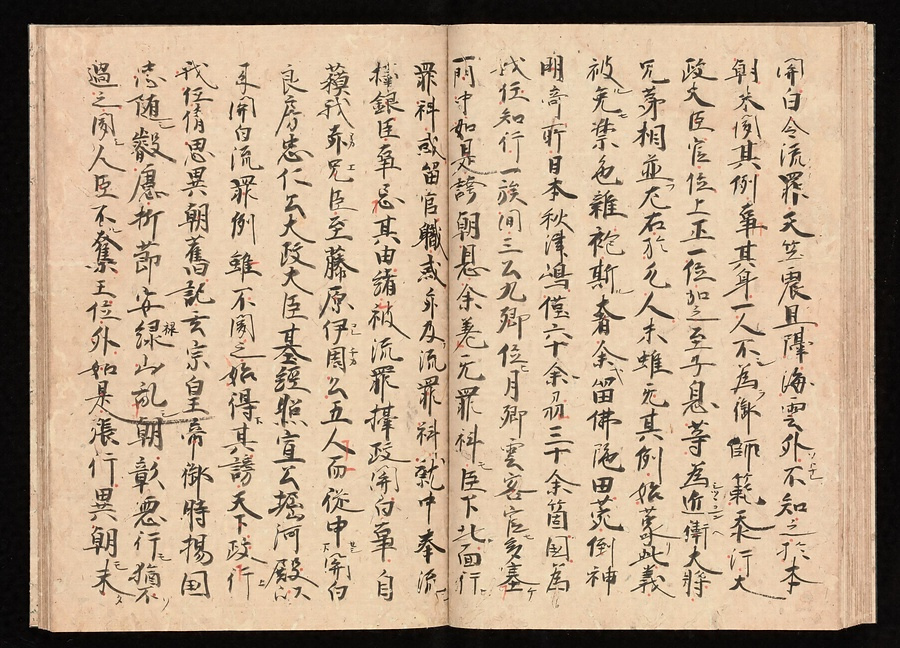 開白令流罪天竺震旦隔海雲外不知之於本
朝未聞其例事其身一人不為御師範忝行大
政大臣官位上正一位加之至子息等為近衛大将
兄弟相並左右於凡人未雖无其例始蒙此義
被免禁色雑袍斯奢余留佛陁田薗倒神
明寄所日本秋津嶋僅六十余州三十余箇国為
我任知行一族間三公九卿位月卿雲客官多塞
所中如是誇朝恩余巻无罪科臣下北面行
罪科或留官職或亦及流罪科就中奉流
権銀臣事忌其由緒被流罪摂政開白事自
蘓我赤兄臣至藤原伊周公五人而従申開白
良房忠仁公大政大臣基経照宣公堀河殿以
来開白流罪例雖不聞之始得其謗天下政行
我任情思異朝舊記玄宗皇帝御時揚国
忠随教應折節安緑山乱朝彰悪行猶不
過之聞人臣不奪王位外如是張行異朝未